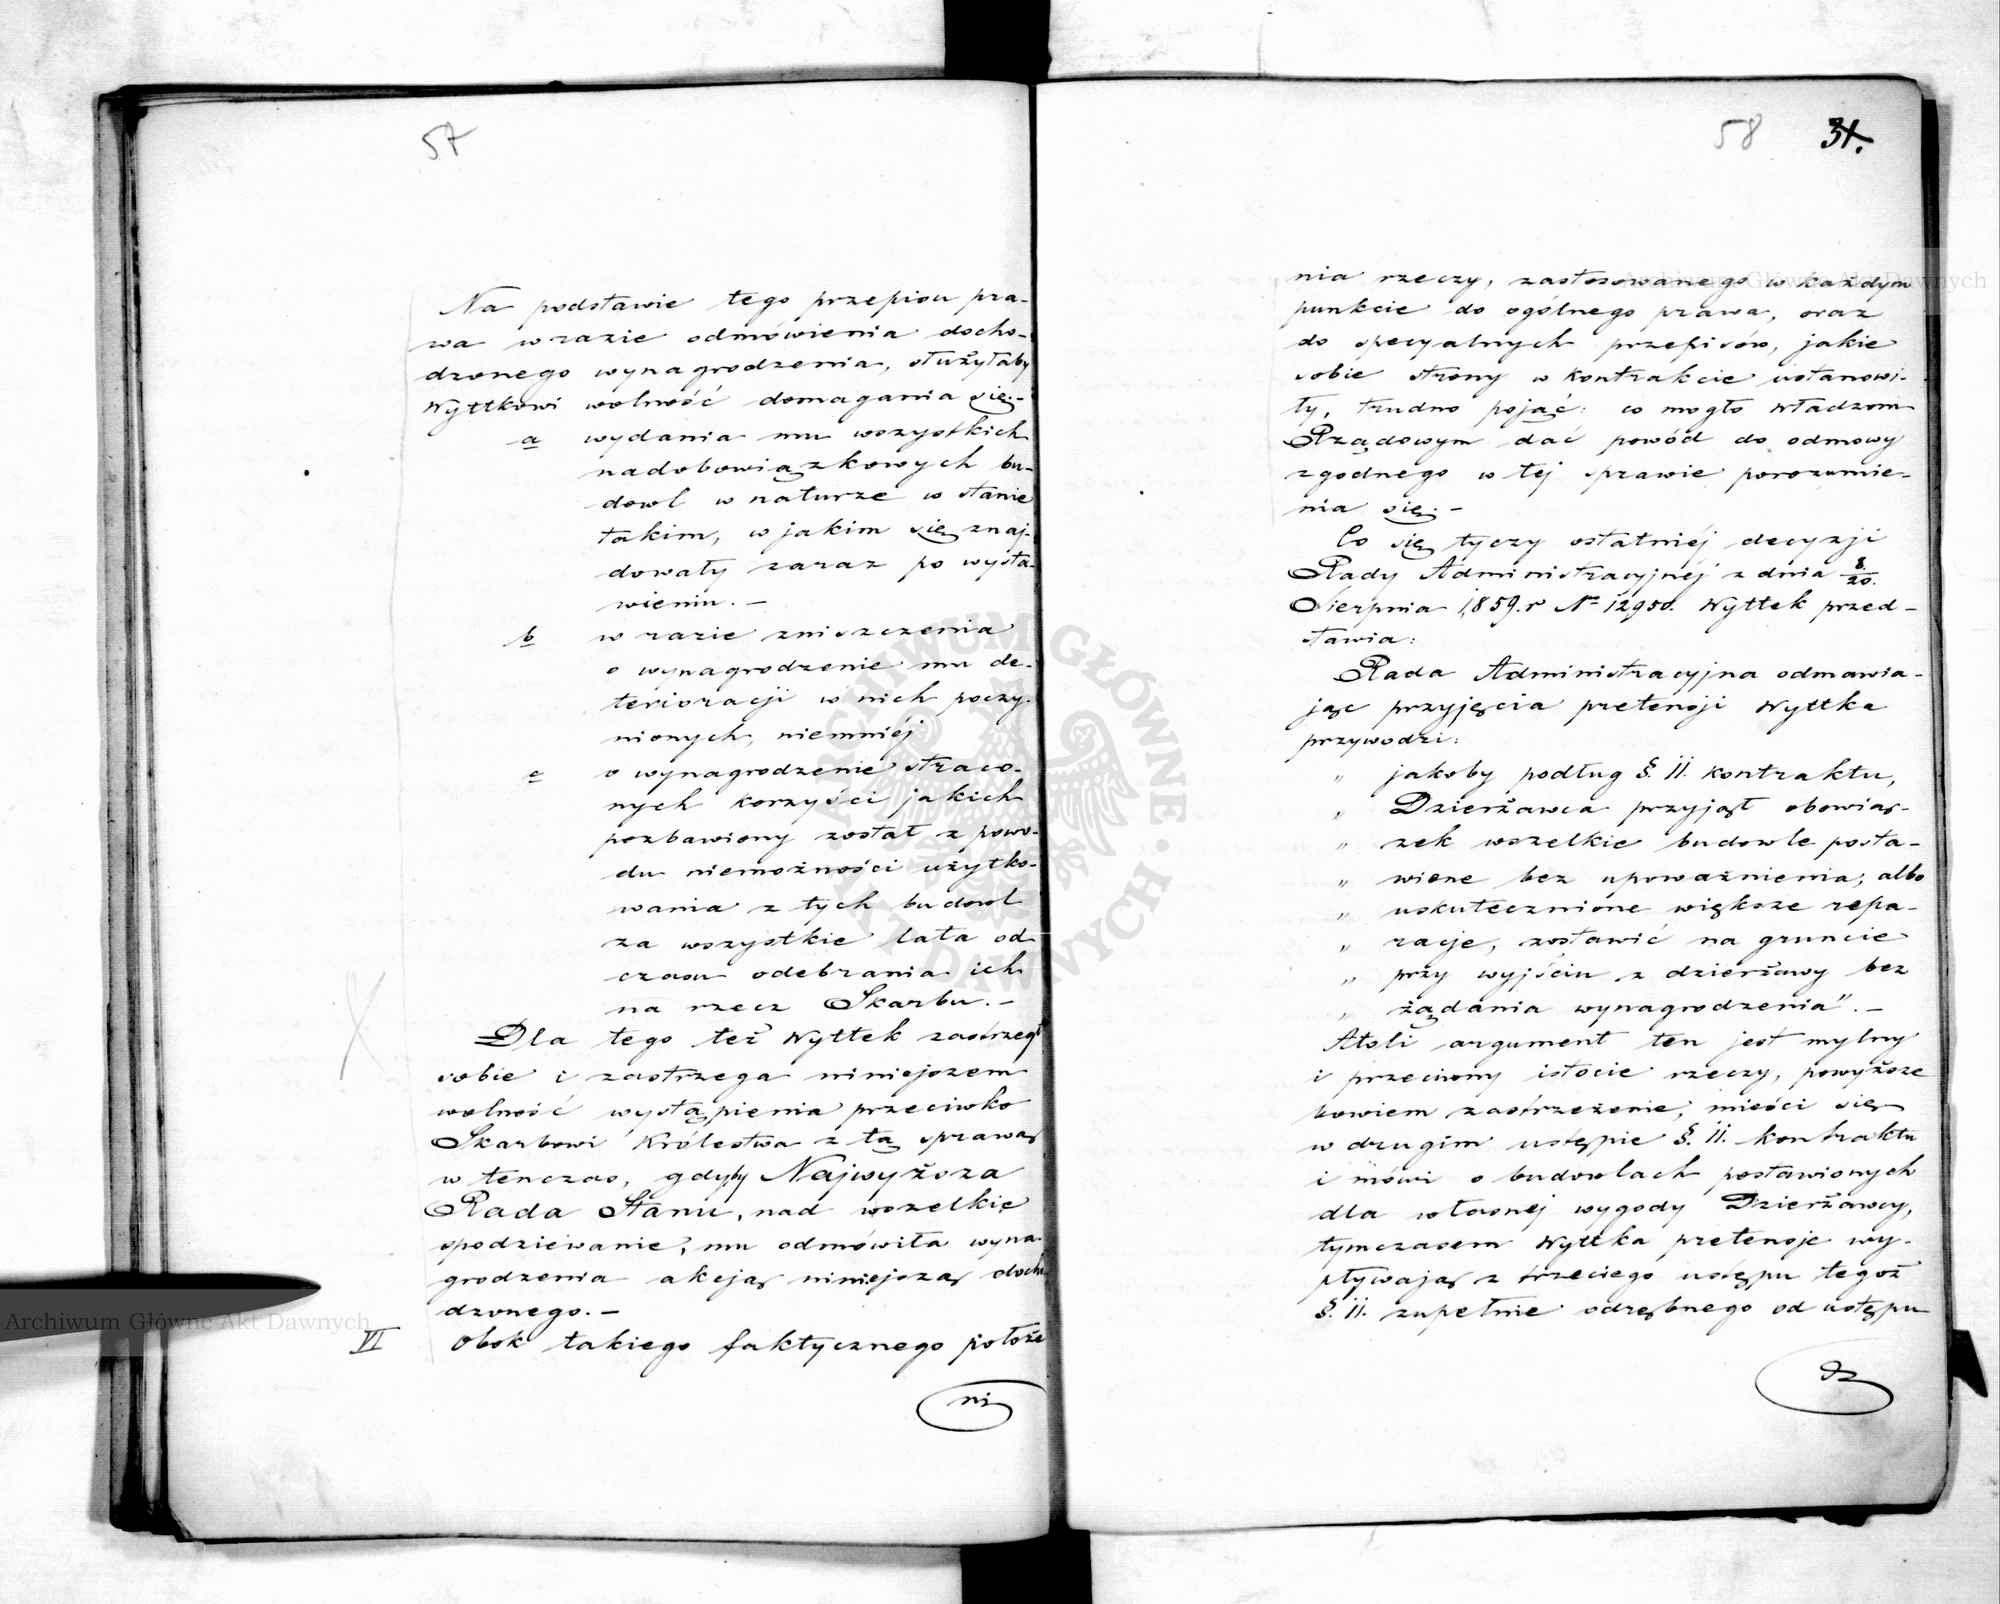 57
Na podstawie tego przepisu pra-
wa w razie odmówienia docho-
dzonego wynagrodzenia, służyłaby
Wyttkowi wolność domagania się.-
a wydania mu wszystkich
nadobowiązkowych bu-
dowl w naturze w stanie
takim, w jakim się znaj-
dowały zaraz po wysta-
wieniu. -
b w razie zniszczenia
o wynagrodzenie mu de-
terioracji w nich poczy-
nionych, niemniéj
c o wynagrodzenie straco-
nych korzyści jakich
pozbawiony został z powo-
du niemożności użytko-
wania z tych budowl
za wszystkie lata od
czasu odebrania ich
na rzecz Skarbu. -
Dla tego też Wyttek zastrzegł
sobie i zastrzega niniejszem
wolność wystąpienia przeciwko
Skarbowi Królestwa z tą sprawą
w tenczas, gdyby Najwyższa
Rada Stanu, nad wszelkie
spodziewanie, mu odmówiła wyna-
grodzenia akcją niniejszą docho-
dzonego. -
VI Obok takiego faktycznego położe
ni
58 31.
nia rzeczy, zastosowanego w każdym
punkcie do ogólnego prawa, oraz
do specyalnych przepisów, jakie
sobie strony w kontrakcie ustanowi-
ły, trudno pojąć: co mogło Władzom
Rządowym dać powód do odmowy
zgodnego w tej sprawie porozumie-
nia się. -
Co się tyczy ostatniéj decyzji
Rady Administracyjnéj z dnia 8/20.
Sierpnia 1859. r № 12950. Wyttek przed-
stawia:
Rada Administracyjna odmawia-
jąc przyjęcia pretensji Wyttka
przywodzi:
„ jakoby podług §. 11. kontraktu,
„ Dzierżawca przyjął obowią-
„ zek wszelkie budowle posta-
„ wione bez upoważnienia, albo
„ uskutecznione większe repa-
„ racje, zostawić na gruncie
„ przy wyjściu z dzierżawy bez
„ żądania wynagrodzenia". -
Atoli argument ten jest mylny
i przeciwny istocie rzeczy, powyższe
bowiem zastrzeżenie, mieści się
w drugim ustępie §. 11. kontraktu
i mówi o budowlach postawionych
dla własnej wygody Dzierżawcy,
tymczasem Wyttka pretensje wy-
pływają z trzeciego ustępu tegoż
§. 11. zupełnie odrębnego od ustępu
dz
ARCHIWUM GŁÓWNE AKT DAWNYCH
Archiwum Główne Akt Dawnych
Archiwum Główne Akt Dawnych